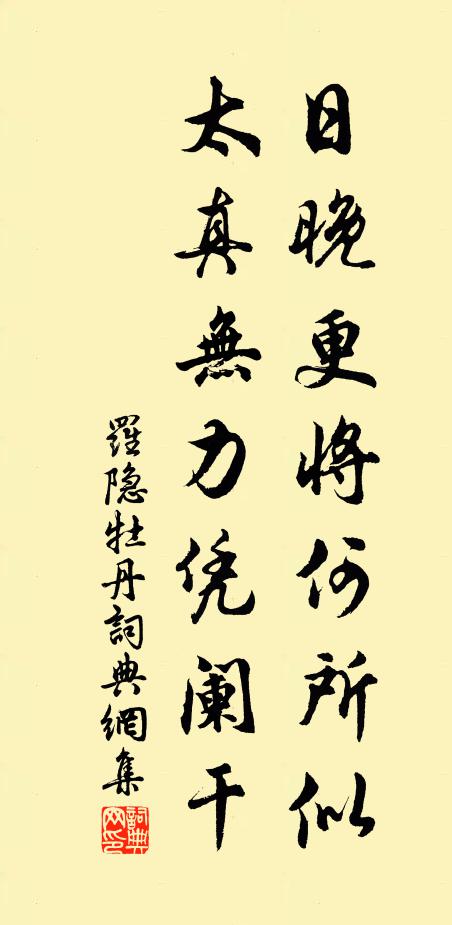 日晚更將何所似
太真無力凭阑干
羅隐牡丹詞典網集
詞典网印